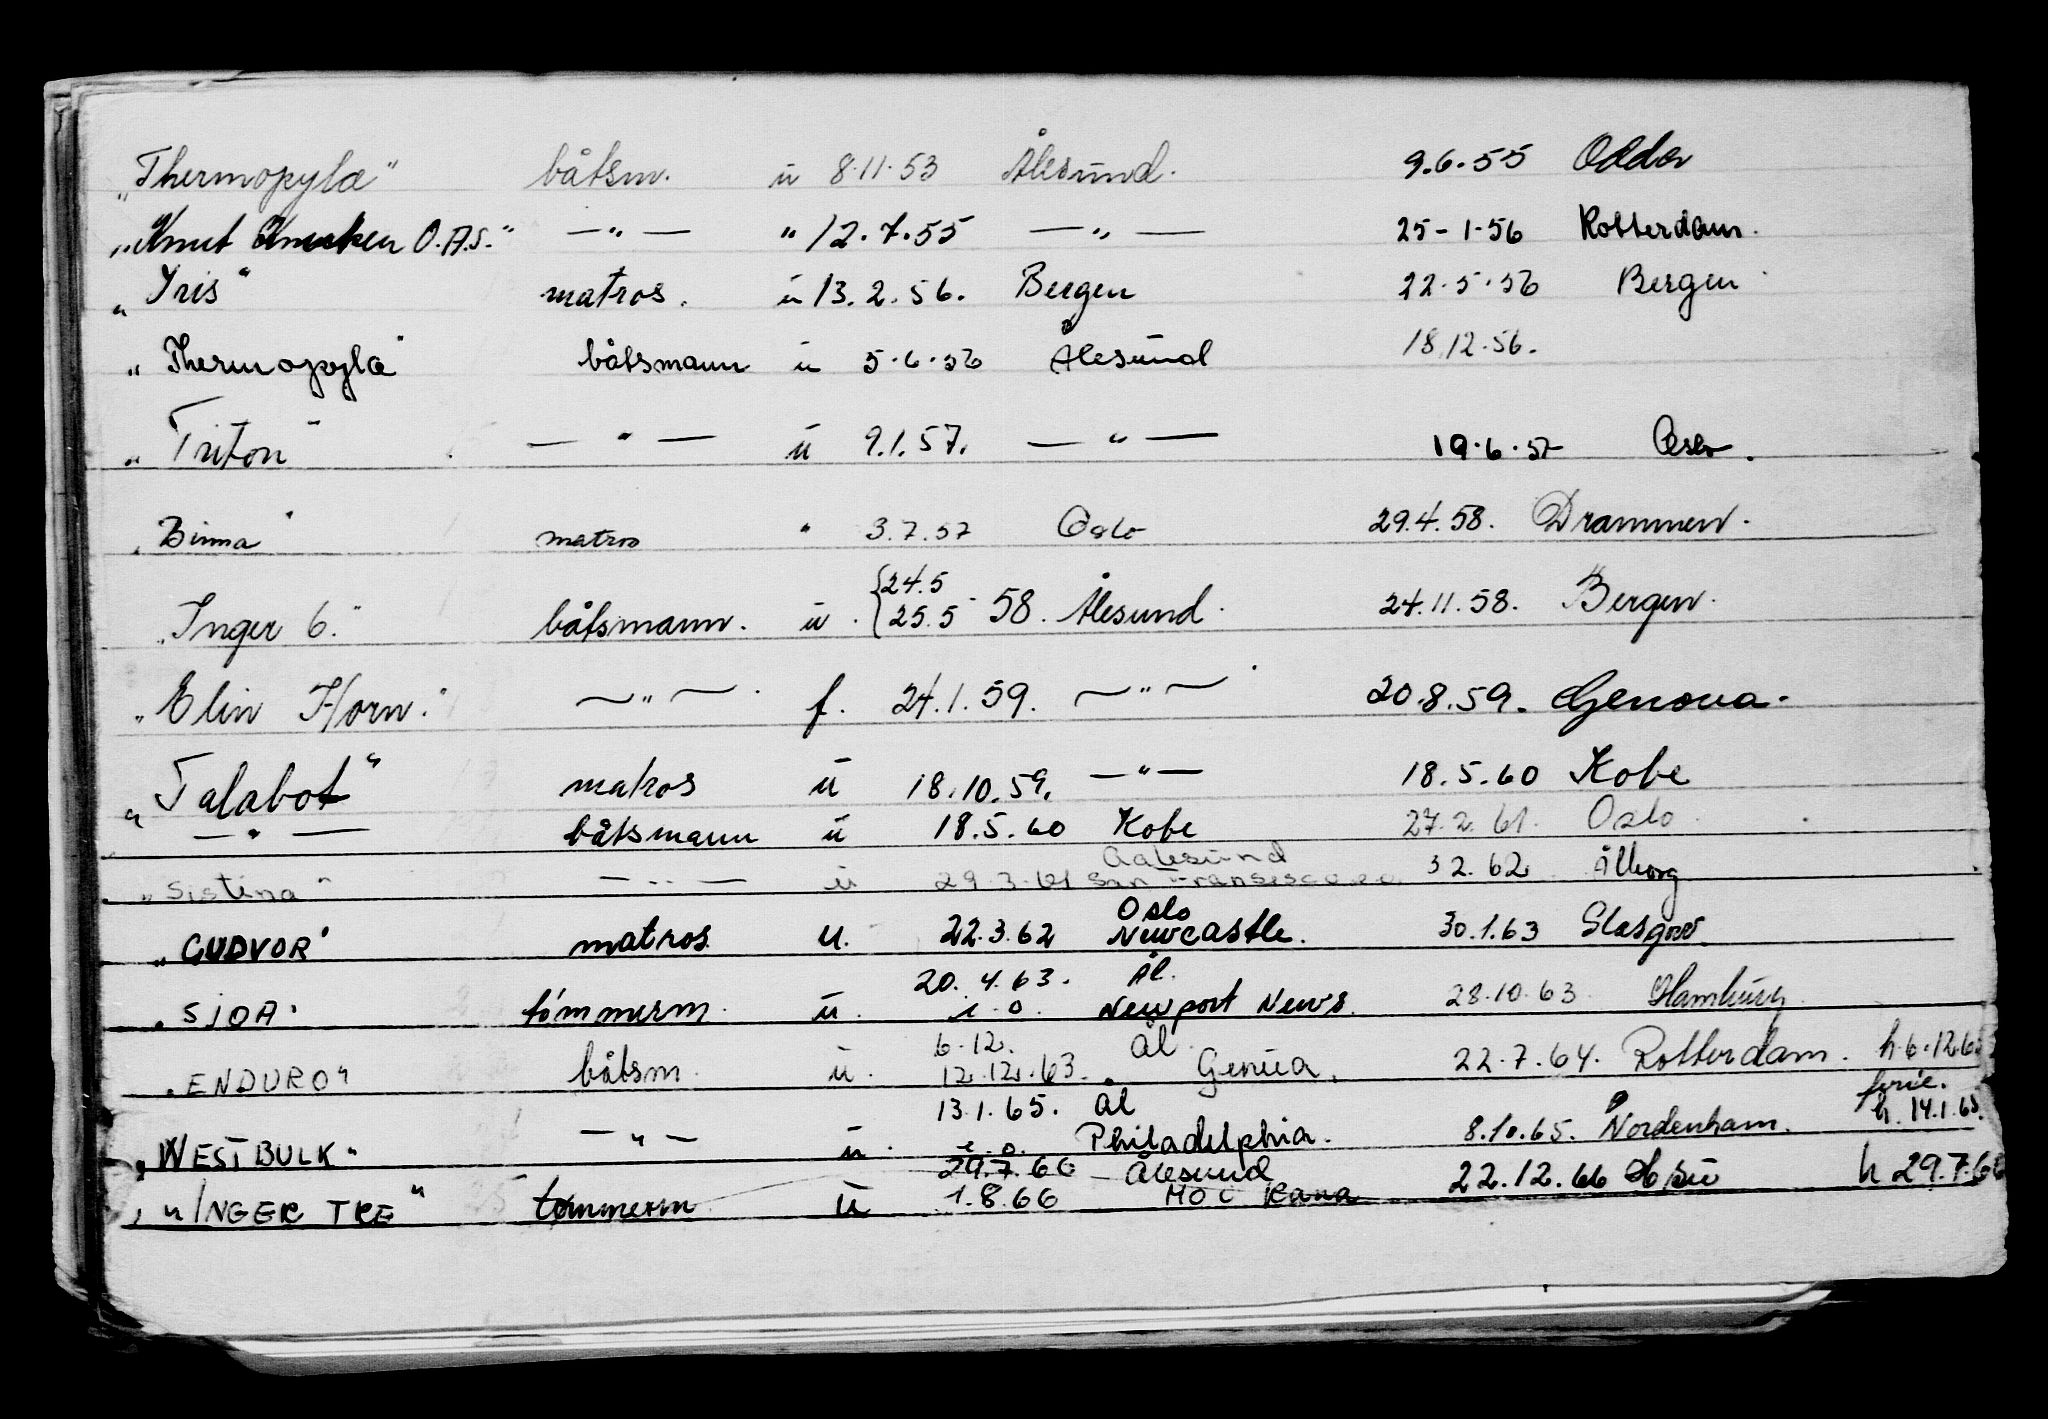 „Thermopylæ" båtsm. ü 8.11.53 Ålesund. 9.6.55 Odda
„Knut Knutsen O.A.S." —"— " 12.7.55 —"— 25-1-56 Rotterdam.
„Iris" matros. ü 13.2.56. Bergen 22.5.56 Bergen
„Thermopylæ" båtsmann ü 5.6.56 Ålesund 18.12.56.
„Triton" —"— ü 9.1.57. —"— 19.6.57 Oslo.
„Binna" matros " 3.7.57 Oslo 29.4.58. Drammen.
{24.5
„Inger 6." båtsmann. ü. {25.5 58. Ålesund. 24.11.58. Bergen.
„Elin Horn." —"—. f. 24.1.59. —"— 20.8.59. Genova.
„Talabot" matros ü 18.10.59. —"— 18.5.60 Kobe
—"— båtsmann ü 18.5.60 Kobe 27.2.61. Oslo.
Aalesund
„Sistina" —"— ü 29.3.61 San Fransisco 3 2.62 Ålborg
Oslo
„GUDVOR" matros. u. 22.3.62 Newcastle. 30.1.63 Glasgow.
20.4.63. Ål.
„SJOA" tömmerm. ü. i.o. Newport News. 28.10.63 Hamburg
6.12. Ål.
„ENDURO" båtsm. ü. 12.12.63. Genua. 22.7.64. Rotterdam. h.6.12.63
13.1.65. Ål ferie.
„WESTBULK" —"— ü. i.o. Philadelphia. 8.10.65. Nordenham. h. 14.1.65.
29.7.66 – Ålesund
„INGER TRE" tømmerm ü 1.8.66 MO i Rana 22.12.66 h 29.7.66